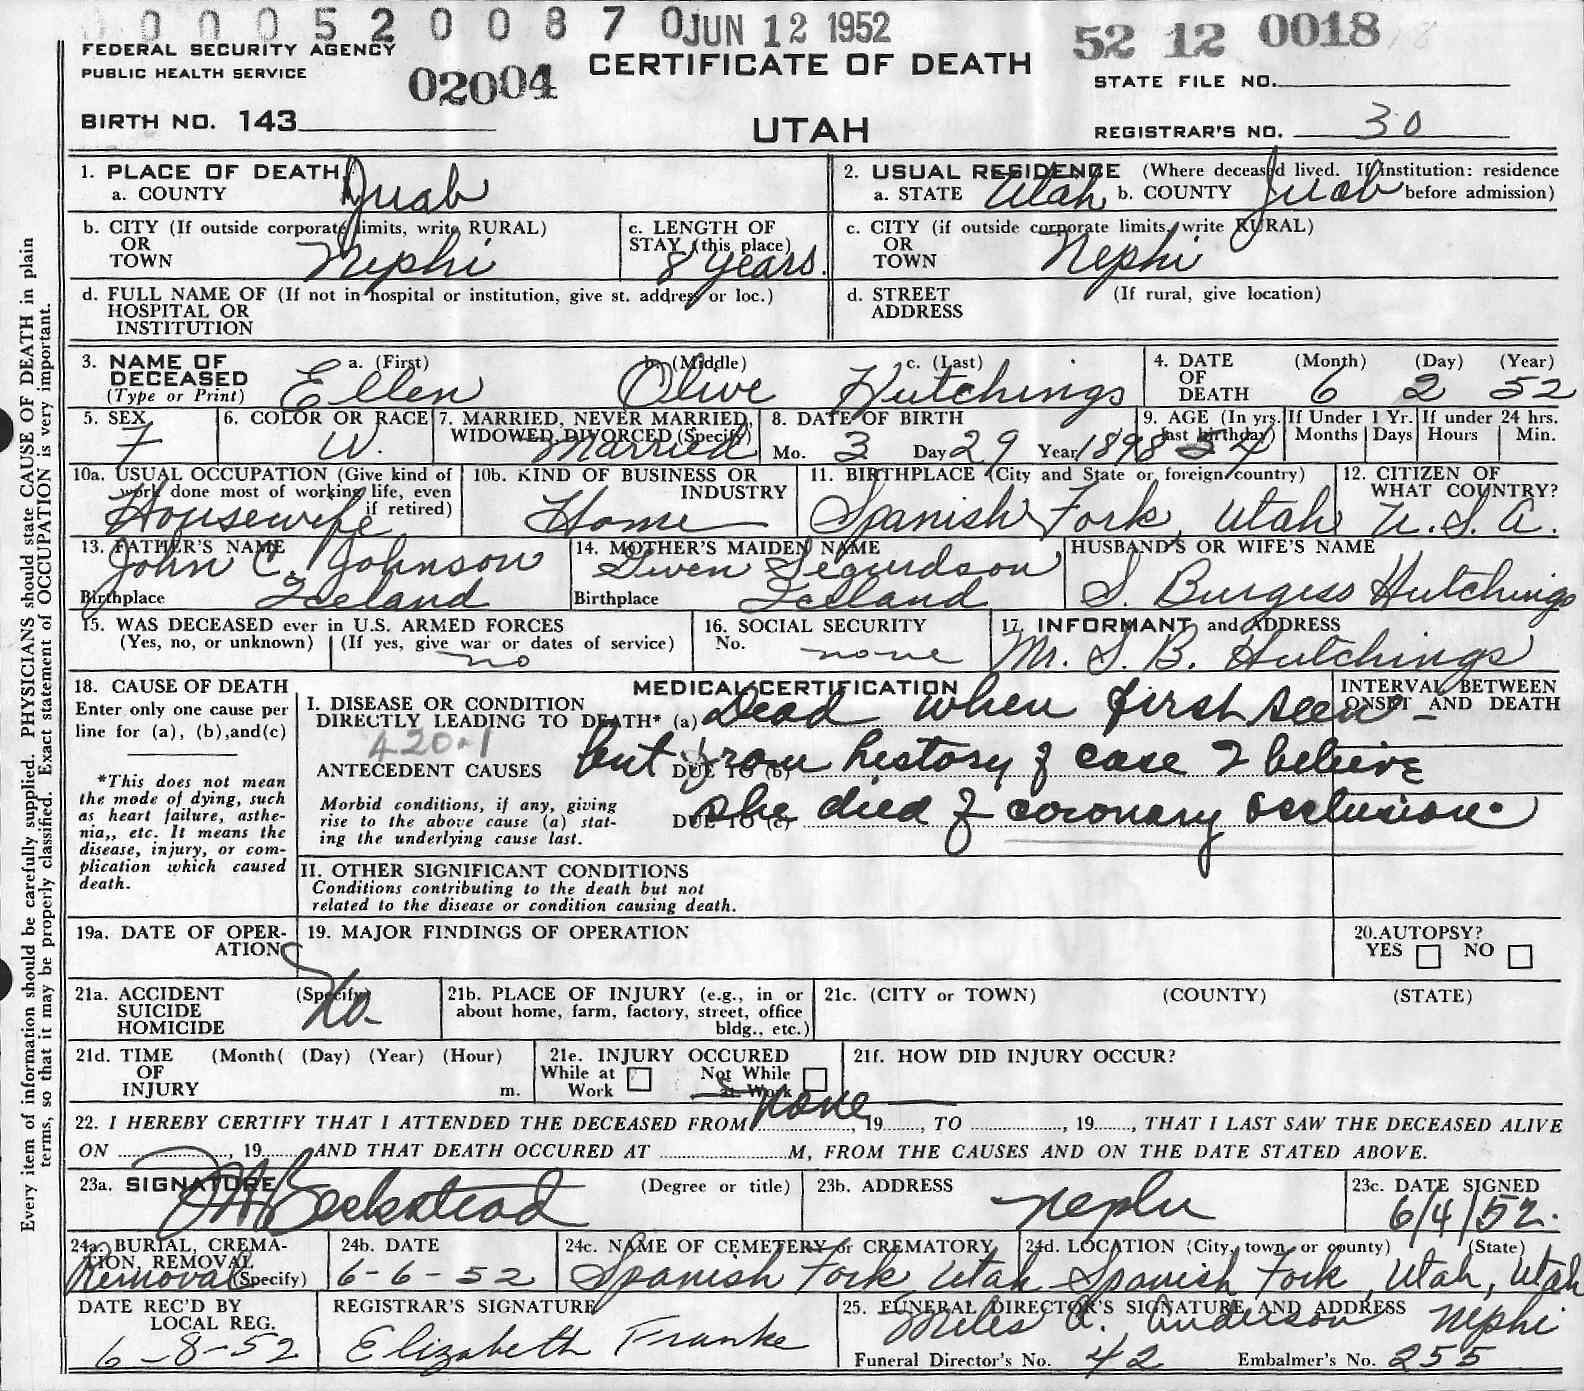 0 0 0 5 2 0 0 8 7 0 JUN 12 1952 52 12 0018
FEDERAL SECURITY AGENCY
PUBLIC HEALTH SERVICE
02004
CERTIFICATE OF DEATH
UTAH
STATE FILE NO.
BIRTH NO. 143
REGISTRAR'S NO. 30
Every item of information should be carefully supplied. PHYSICIANS should state CAUSE OF DEATH in plain
terms, so that it may be properly classified. Exact statement of OCCUPATION is very important.
1. PLACE OF DEATH
a. COUNTY Juab
2. USUAL RESIDENCE (Where deceased lived. If institution: residence
a. STATE Utah b. COUNTY Juab before admission)
b. CITY (If outside corporate limits, write RURAL)
OR
TOWN Nephi
c. LENGTH OF
STAY (this place)
8 years.
c. CITY (if outside corporate limits, write RURAL)
OR
TOWN Nephi
d. FULL NAME OF (If not in hospital or institution, give st. address or loc.)
HOSPITAL OR
INSTITUTION
d. STREET (If rural, give location)
ADDRESS
3. NAME OF a. (First) b. (Middle) c. (Last)
DECEASED Ellen Olive Hutchings
(Type or Print)
4. DATE (Month) (Day) (Year)
OF
DEATH 6 2 52
5. SEX
F
6. COLOR OR RACE
W.
7. MARRIED, NEVER MARRIED,
WIDOWED, DIVORCED (Specify)
Married
8. DATE OF BIRTH
Mo. 3 Day 29 Year 1898
9. AGE (In yrs.
last birthday)
54
If Under 1 Yr.
Months Days
If under 24 hrs.
Hours Min.
10a. USUAL OCCUPATION (Give kind of
work done most of working life, even
if retired)
Housewife
10b. KIND OF BUSINESS OR
INDUSTRY
Home
11. BIRTHPLACE (City and State or foreign country)
Spanish Fork, Utah
12. CITIZEN OF
WHAT COUNTRY?
U.S.A.
13. FATHER'S NAME
John C. Johnson
Birthplace Iceland
14. MOTHER'S MAIDEN NAME
Given Segurdson
Birthplace Iceland
HUSBAND'S OR WIFE'S NAME
S. Burgess Hutchings
15. WAS DECEASED ever in U.S. ARMED FORCES
(Yes, no, or unknown) (If yes, give war or dates of service)
no
16. SOCIAL SECURITY
No. none
17. INFORMANT and ADDRESS
Mr. S. B. Hutchings
18. CAUSE OF DEATH
Enter only one cause per
line for (a), (b), and (c)
*This does not mean
the mode of dying, such
as heart failure, asthe-
nia,, etc. It means the
disease, injury, or com-
plication which caused
death.
MEDICAL CERTIFICATION
I. DISEASE OR CONDITION
DIRECTLY LEADING TO DEATH* (a) Dead when first seen -
420.1
ANTECEDENT CAUSES DUE TO (b) but from history of case I believe
Morbid conditions, if any, giving
rise to the above cause (a) stat-
ing the underlying cause last.
DUE TO (c) she died of coronary occlusion.
INTERVAL BETWEEN
ONSET AND DEATH
II. OTHER SIGNIFICANT CONDITIONS
Conditions contributing to the death but not
related to the disease or condition causing death.
19a. DATE OF OPER-
ATION
19. MAJOR FINDINGS OF OPERATION
20. AUTOPSY?
YES NO
21a. ACCIDENT (Specify)
SUICIDE
HOMICIDE
No.
21b. PLACE OF INJURY (e.g., in or
about home, farm, factory, street, office
bldg., etc.)
21c. (CITY or TOWN) (COUNTY) (STATE)
21d. TIME (Month( (Day) (Year) (Hour)
OF
INJURY m.
21e. INJURY OCCURED
While at Not While
Work at Work
21f. HOW DID INJURY OCCUR?
22. I HEREBY CERTIFY THAT I ATTENDED THE DECEASED FROM none, 19......, TO ................, 19......, THAT I LAST SAW THE DECEASED ALIVE
ON ................, 19...... AND THAT DEATH OCCURED AT ................M, FROM THE CAUSES AND ON THE DATE STATED ABOVE.
23a. SIGNATURE (Degree or title)
Beckstead
23b. ADDRESS
Nephi
23c. DATE SIGNED
6/4/52.
24a. BURIAL, CREMA-
TION, REMOVAL
(Specify)
Removal
24b. DATE
6-6-52
24c. NAME OF CEMETERY or CREMATORY
Spanish Fork, Utah
24d. LOCATION (City, town, or county) (State)
Spanish Fork, Utah, Utah
DATE REC'D BY
LOCAL REG.
6-8-52
REGISTRAR'S SIGNATURE
Elizabeth Franke
25. FUNERAL DIRECTOR'S SIGNATURE AND ADDRESS
Miles A. Anderson Nephi
Funeral Director's No. 42 Embalmer's No. 255